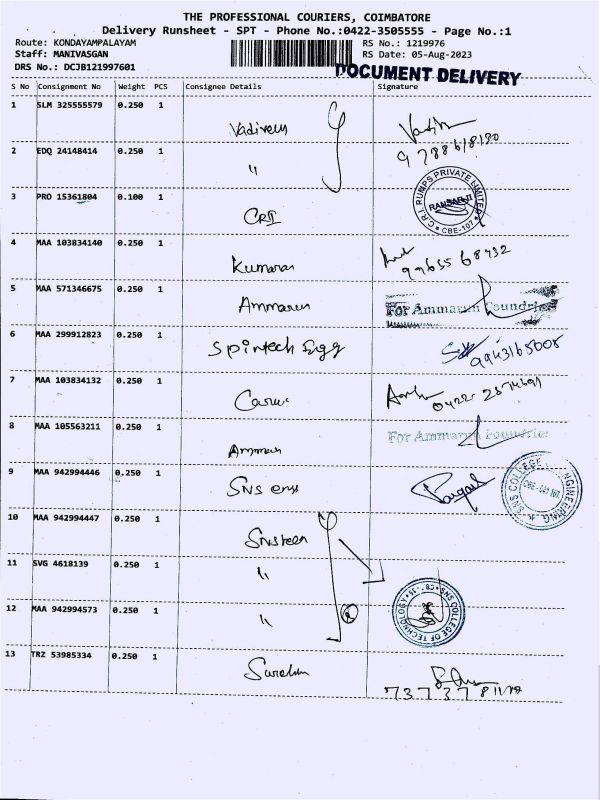 THE PROFESSIONAL COURIERS, COIMBATORE
Delivery Runsheet - SPT - Phone No.:0422-3505555 - Page No.:1
Route: KONDAYAMPALAYAM RS No.: 1219976
Staff: MANIVASGAN RS Date: 05-Aug-2023
DRS No.: DCJB121997601 DOCUMENT DELIVERY
S No Consignment No Weight PCS Consignee Details Signature
1 SLM 325555579 0.250 1 Vadivelu
9788618180
2 EDQ 24148414 0.250 1 "
3 PRO 15361804 0.100 1 CRI
C.R.I. PUMPS PRIVATE LIMITED
CBE-107
4 MAA 103834140 0.250 1 Kumaran
9965568932
5 MAA 571346675 0.250 1 Ammarun
For Ammarun Foundries
6 MAA 299912823 0.250 1 Spintech Engg 9943165005
7 MAA 103834132 0.250 1
8 MAA 105563211 0.250 1 Ammarun
For Ammarun Foundries
9 MAA 942994446 0.250 1 SNS eng
SNS COLLEGE ENGINEERING
10 MAA 942994447 0.250 1
11 SVG 4618139 0.250 1 "
12 MAA 942994573 0.250 1 "
SNS COLLEGE OF TECHNOLOGY
13 TRZ 53985334 0.250 1